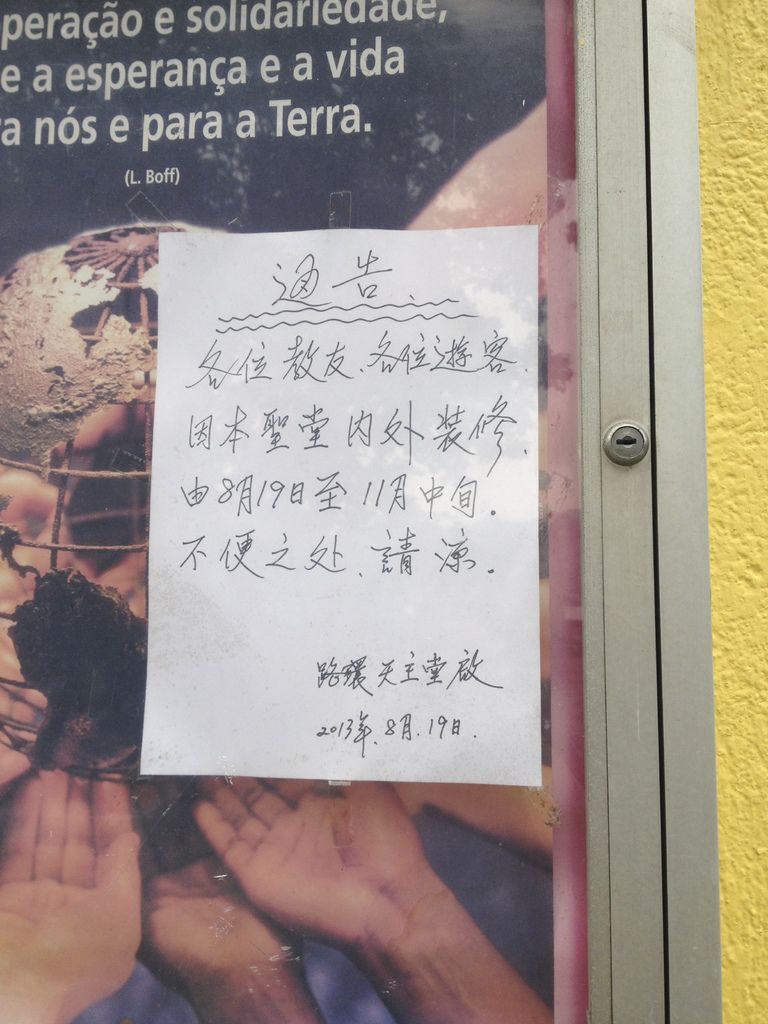 peração e solidariedade,
e a esperança e a vida
a nós e para a Terra.
(L. Boff)
通告
各位教友、各位遊客.
因本聖堂內外装修.
由8月19日至11月中旬。
不便之处、請涼。
路環天主堂啟
2013年.8月.19日.